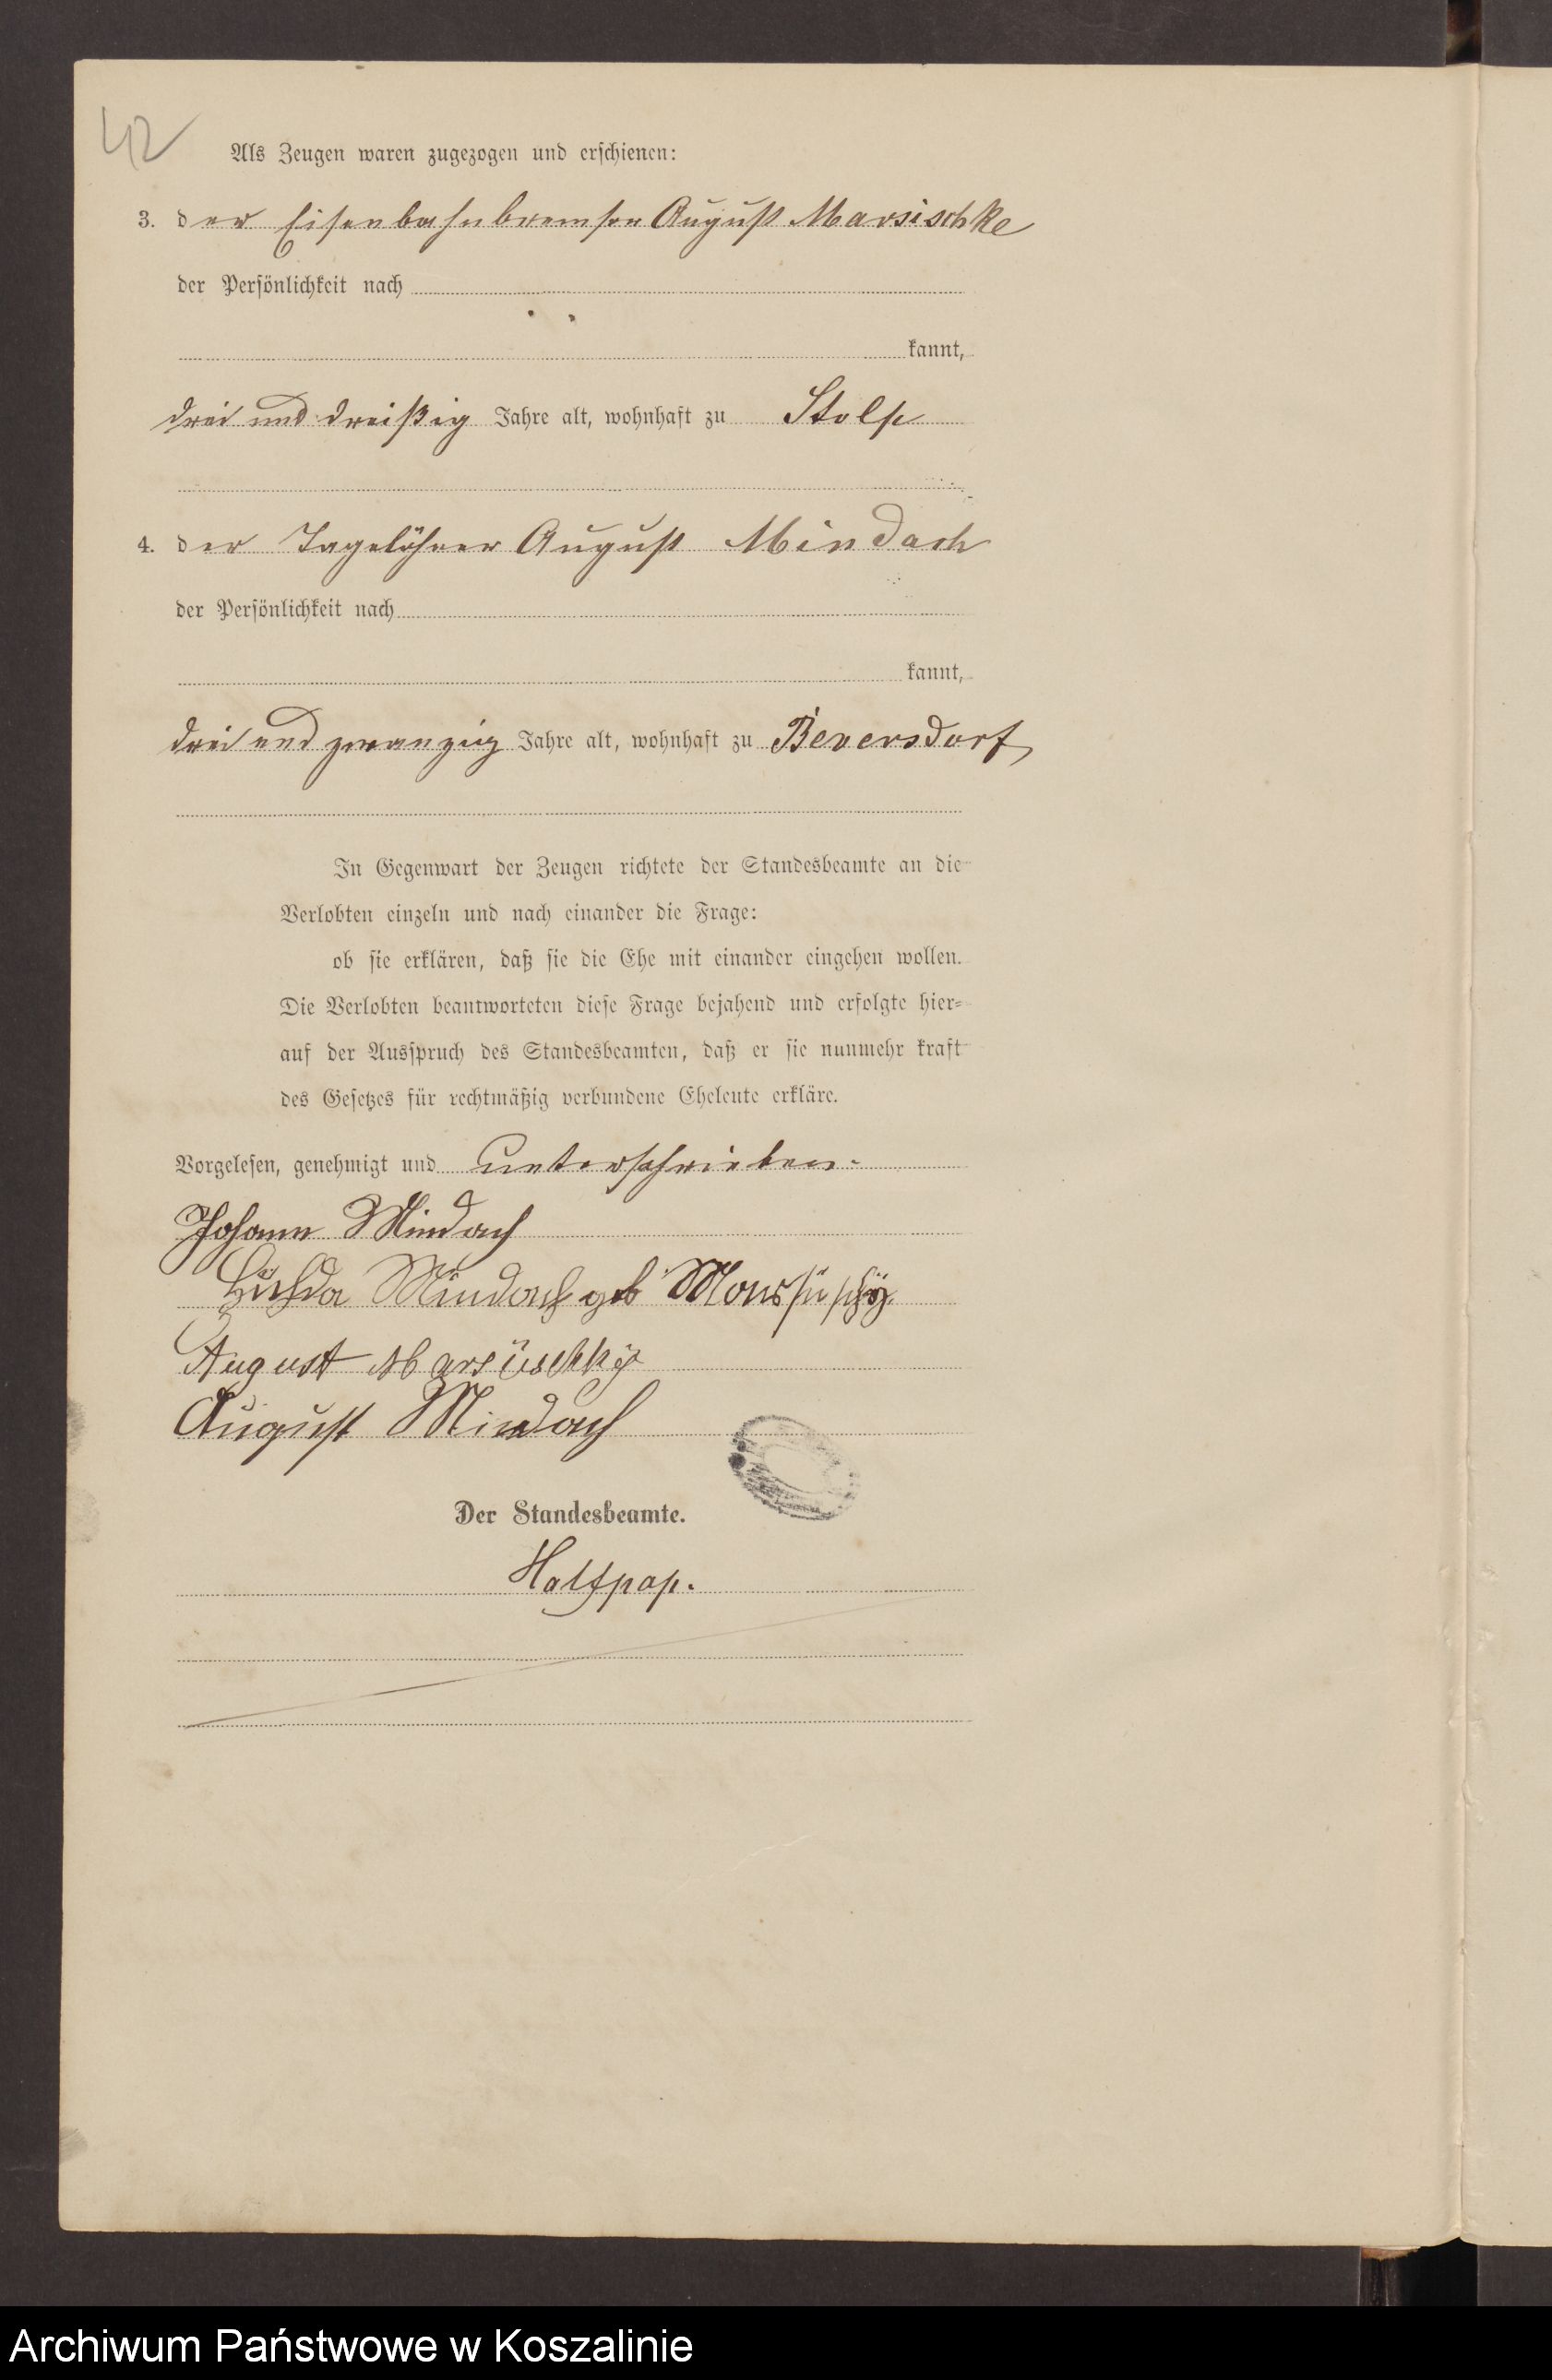 42
Als Zeugen waren zugezogen und erschienen:
3. der Eisenbahnbremser August Marsischke
der Persönlichkeit nach
kannt,
drei und dreißig Jahre alt, wohnhaft zu Stolp
4. der Tagelöhner August Mindach
der Persönlichkeit nach
kannt,
drei und zwanzig Jahre alt, wohnhaft zu Beversdorf,
In Gegenwart der Zeugen richtete der Standesbeamte an die
Verlobten einzeln und nach einander die Frage:
ob sie erklären, daß sie die Ehe mit einander eingehen wollen.
Die Verlobten beantworteten diese Frage bejahend und erfolgte hier=
auf der Ausspruch des Standesbeamten, daß er sie nunmehr kraft
des Gesetzes für rechtmäßig verbundene Eheleute erkläre.
Vorgelesen, genehmigt und unterschrieben.
Johann Mindach
Mindach geb
August
August Mindach
Der Standesbeamte.
Halfpap.
Archiwum Państwowe w Koszalinie